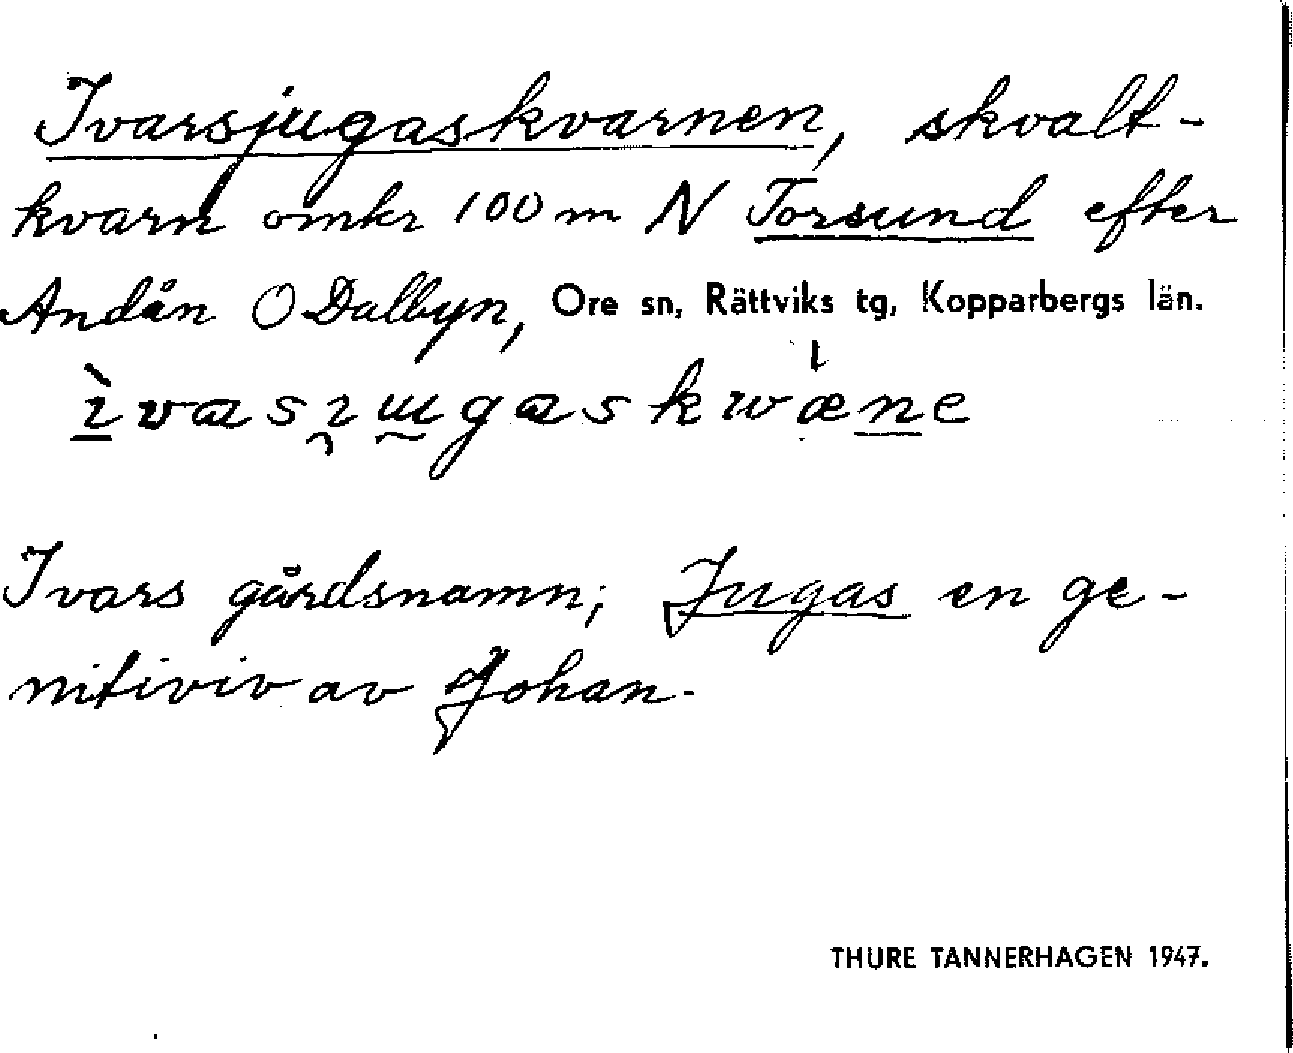 Ivarsjugaskvarnen, skvalt-
kvarn omkr 100 m N Torsund efter
Andån O Dalbyn, Ore sn, Rättviks tg, Kopparbergs län.
ìvasɿɯgaskwæne
Ivars gårdsnamn; Jugas en ge-
nitiviv av Johan.
THURE TANNERHAGEN 1947.